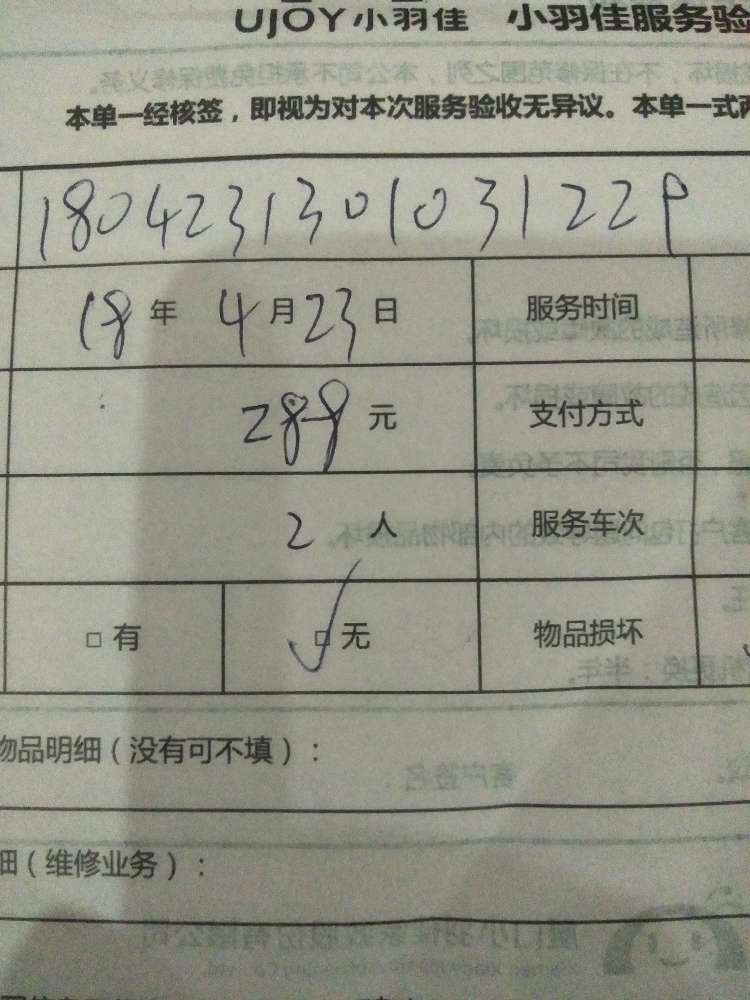 UJOY小羽佳 小羽佳服务验
本单一经核签，即视为对本次服务验收无异议。本单一式两
180423130103122９
18年 4月23日 服务时间
288元 支付方式
2人 服务车次
□有 □无 物品损坏
物品明细（没有可不填）：
细（维修业务）：